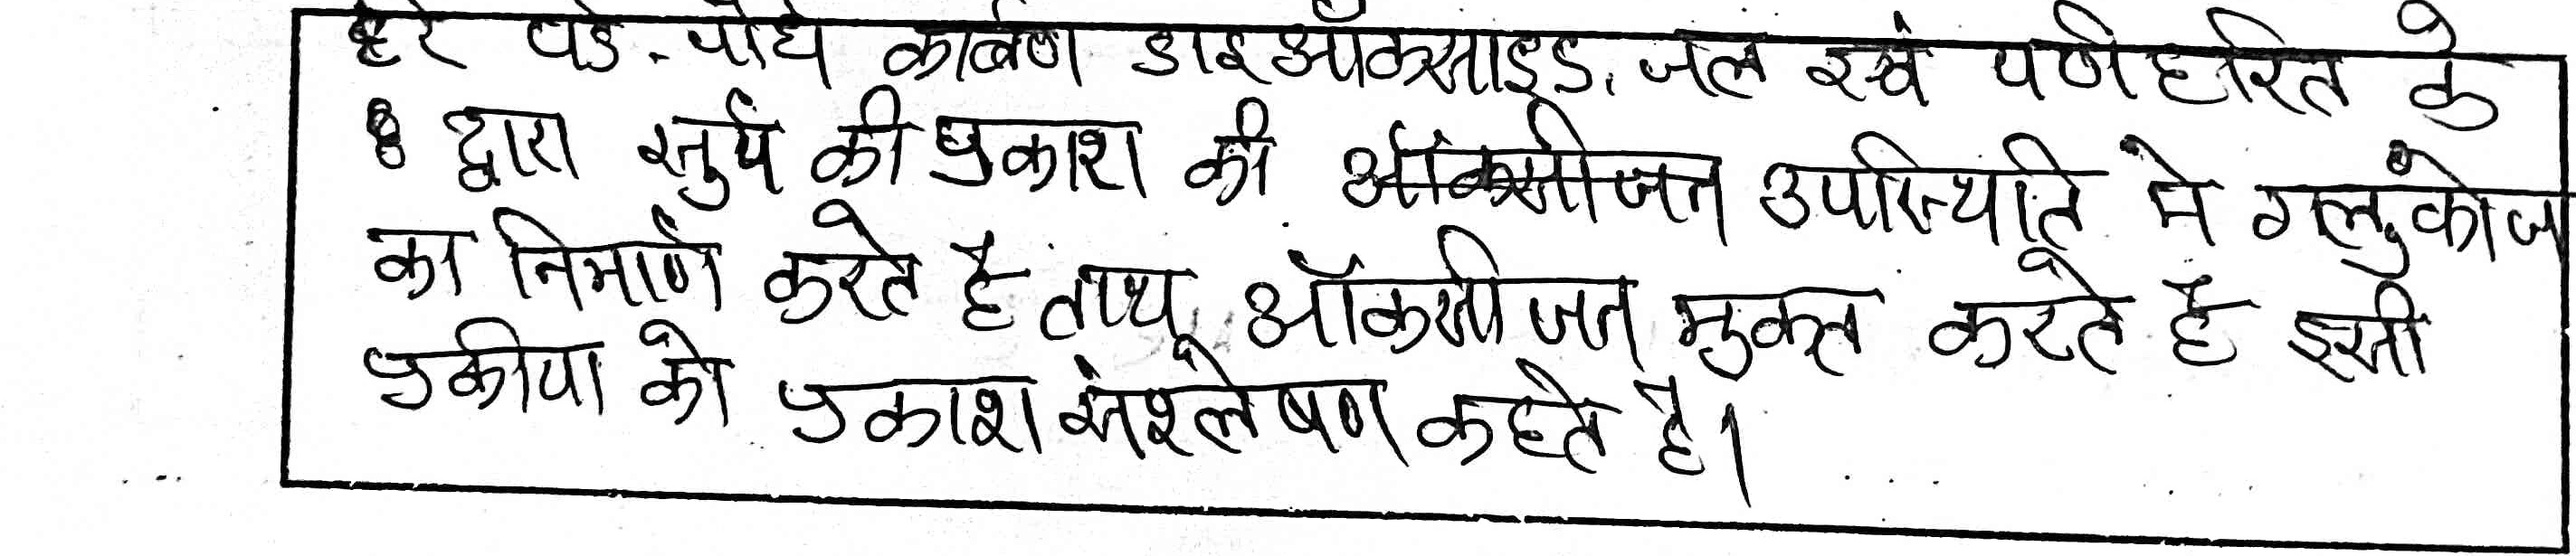 हरे पेड-पौधे कार्बण डाइऑक्साइड, जल एवं पर्णहरित के
द्वारा सुर्य की प्रकाश की ऑक्सीजन उपस्थिति मे ग्लुकोज
का निमार्ण करते है ताथ ऑक्सीजन मुक्त करते है इसी
प्रकीया को प्रकाश संश्लेषण कहते है।